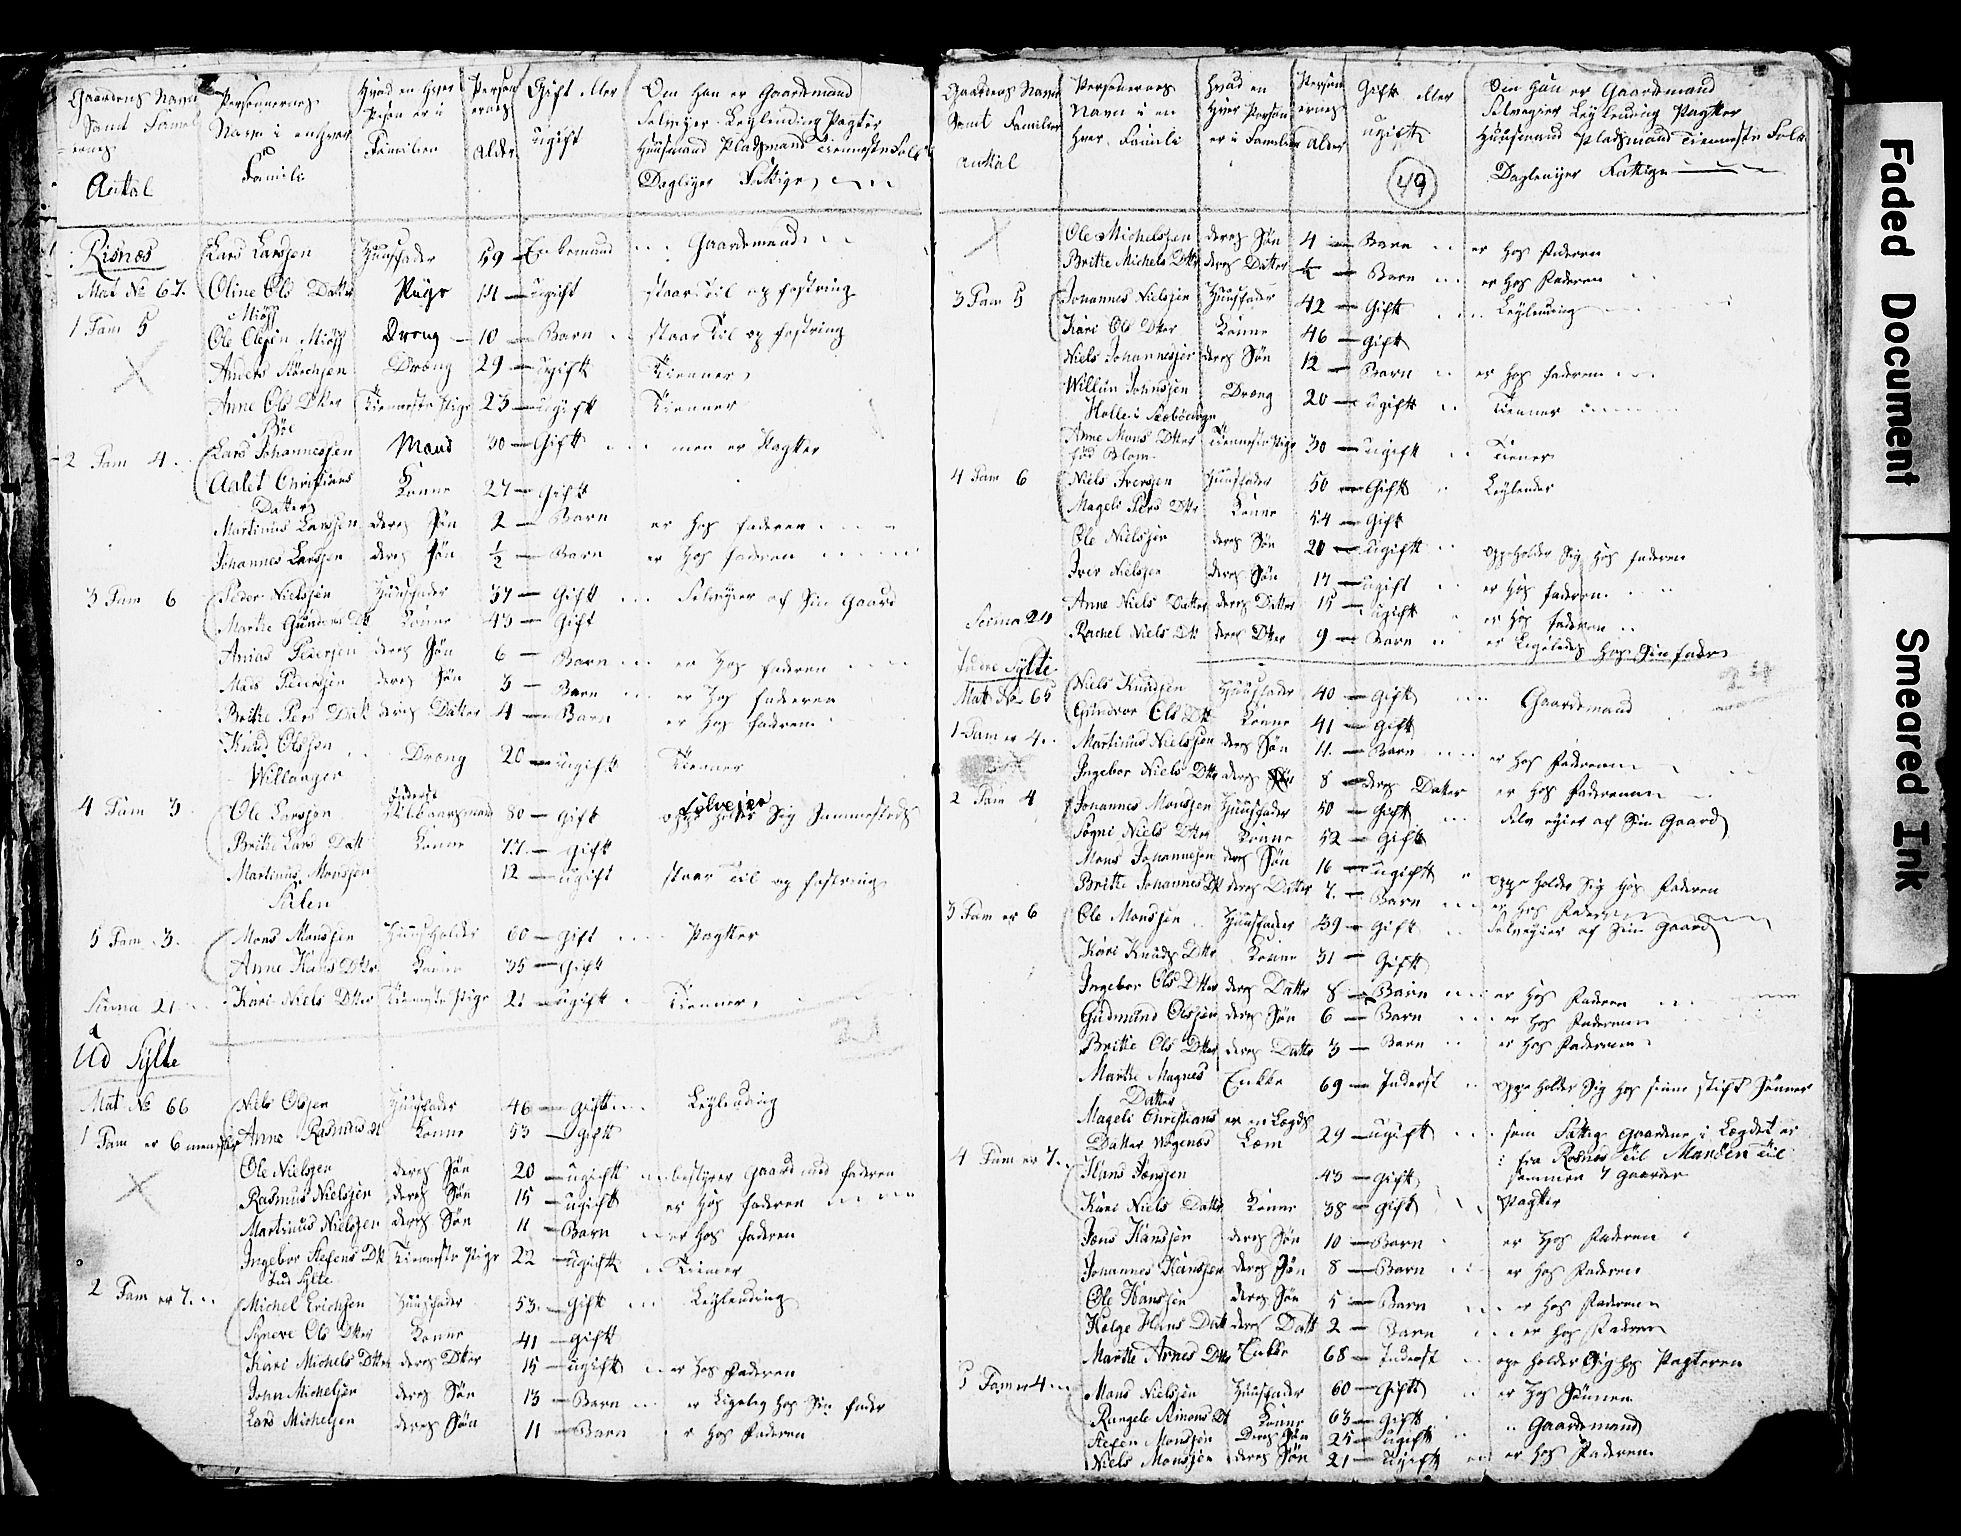 Gaardens Navn samt Famili- ernes Antal | Personernes Navn i enhver Famili | Hvad en hver Person er i Familien | Person ernes Alder | Gift eller ugift | Om Han er Gaardemand Selveyer Leylending Pagter Huusmand Pladsmand Tienneste Folk Daglejer Fattige
Risnæs Lars Larssen Huusfader 59 Enkemand Gaardemand
Mat No 67. Oline Ols Datter Piige 14 ugift staar Til og fostring
Miøss
1 Fam 5 Ole Olssen Miøss Dræng 10 Barn staar Til og fostring
Anders Dræng 29 ugift Tienner
Anne Ols Dtter Tienneste Pige 23 ugift Tienner
Böe
2 Fam 4 Lars Johannessen Mand 30 Gift men er Pagtter
Aalet Christians Konne 27 Gift
Datter
Martinus Larssen deres Søn 2 Barn er hos faderen
Johannes Larssen deres Søn ½ Barn er hos faderen
3 Fam 6 Peder Nielssen Huusfader 37 Gift Selveyier af Sin Gaard
Marthe Dt Konne 43 Gift
Anias Pedersen deres Søn 6 Barn er hos faderen
Mads Pedersen deres Søn 3 Barn er hos faderen
Britte Pers Datt deres Datter 4 Barn er hos faderen
Knud Olssen Dræng 20 ugift Tienner
Willanger
4 Fam 3 Ole Larssen 80 Gift Selvejer opp holder Sig Sammesteds
Britte Lars Datt Konne 77. Gift
Martinus Monssen 12 ugift staar Til og fostring
5 Fam 3. Mons Monssen Huusholder 60 Gift Pagtter
Anne Hans Dtter Konne 35 Gift
Suma 21 Kari Niels Dtter Tienneste Pige 21 ugift Tienner
21
Ud Sylte
Mat No 66 Niels Olssen Huusfader 46 Gift Leylending
1 Fam er 6 menisker Anne Rasmusdt Konne 53 Gift
Ole Nielssen deres Søn 20 ugift bestyrer Gaard med faderen
Rasmus Nielssen deres Søn 15 ugift er hos faderen
Martinus Nielssen deres Søn 11 Barn er hos faderen
Ingebor Stefens Dt Tienneste Pige 22 ugift Tienner
Sylte
2 Fam er 7. Michel Erichsen Huusfader 53. Gift Leylending
Synneve Ols Dtter Konne 41 Gift
Kari Michels Dtter deres Dtter 15 ugift er hos Faderen
John Michelsen deres Søn 13 Barn er Ligeleg hos Sin fader
Lars Michelsen deres Søn 11 Barn er hos Faderen
Gaardens Navn samt Familier Antal | Personernes Navn i en hver Famili | Hvad en hver Person er i Familien | Person ernes Alder | Gift eller ugift | Om Han er Gaardemand Selveyier Leylending Pagtter Huusmand Pladsmand Tienneste Folk Daglejer Fattige
49
Ole Michelssen deres Søn 4 Barn er hos Faderen
Britte Michels Dtter deres Datter Barn er hos Faderen
3 Fam 5 Johannes Nielssen Huusfader 42 Gift Leylending
Kari Ols Dtter Konne 46 Gift
Niels Johannessen deres Søn 12 Barn er hos faderen
Willum Johnssen Dræng 20 ugift Tienner
Holle i
Anne Mons Dtter Tienneste Pige 30 ugift Tienner
4 Fam 6 Niels Iverssen Huusfader 50 Gift Leylender
Magele Pers Dtter Konne 54 Gift
Ole Nielssen deres Søn 20 ugift opp holder Sig hos faderen
Iver Nielssen deres Søn 17 ugift er hos faderen
Anne Niels Datter deres Datter 15 ugift er hos faderen
Suma 24 Rachel Niels Dt deres Dtter 9 Barn er Ligeledes hos Sin fader
Indre Sylte
Mat No 65 Niels Knudsen Huusfader 40 Gift Gaardemand
Gundvor Ols Dt Konne 41 Gift
1 Fam er 4. Martinus Nielssen deres Søn 11. Barn er hos Faderen
Ingebor Niels Dtter deres 8 deres Datter er hos Faderen
2 Fam 4 Johannes Monssen Huusfader 50 Gift Selv eyier af Sin Gaard
Niels Dtter Konne 52 Gift
Mons Johannessen deres Søn 16 ugift opp holder Sig hos Faderen
Britte Johannes Dt deres Datter 7. Barn er hos Faderen
3 Fam er 6 Ole Monssen Huusfader 39 Gift Selveyier af Sin Gaard
Kari Knuds Dtter Konne 31 Gift
Ingebor Ols Dtter deres Datter 8 Barn er hos Faderen
Gudmund Olssen deres Søn 6 Barn er hos Faderen
Britte Ols Dtter deres Datter 3 Barn er hos Faderen
Marthe Magnes Enkke 69 Inderst opp holder Sig hos sinne stiff Sønner
Datter
Magele Christians er en Legds 29 ugift som Fattig Gaardene i Legdet er
Datter Lem fra Risnæs til til
4 Fam er 7. Hans Jonssen 43 Gift sammen 7 Gaarder
Kari Niels Datter Konne 38 Gift Pagtter
Jons Hanssen deres Søn 10 Barn er hos Faderen
Johannes Hanssen deres Søn 8 Barn er hos Faderen
Ole Hanssen deres Søn 5 Barn er hos Faderen
Helge Hans Datt deres Datt 2 Barn er hos Faderen
Marthe Arnes Dtter Enkke 68 Inderst opp holder Sig hos Pagteren
5 Fam er 4 Mons Nielssen Huusfader 60 Gift er hos Sønnen
Rangele Simons Dt Konne 63 Gift Gaardemand
Stefen Monssen deres Søn 25 ugift
Niels Monssen deres Søn 21 ugift er hos Faderen
Faded Document
Smeared Ink